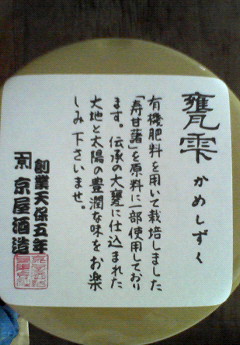 甕雫
かめしずく
有機肥料を用いて栽培しました
「寿甘藷」を原料に一部使用しており
ます。伝承の大甕に仕込まれた
大地と太陽の豊潤な味をお楽
しみ下さいませ。
創業天保五年
京屋酒造